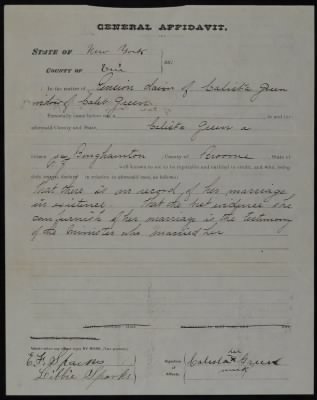 GENERAL AFFIDAVIT.
STATE OF New York
COUNTY OF Erie } ss:
In the matter of Pension claim of Calista Green
widow of Caleb Green
Personally came before me a in and for
aforesaid County and State, Calista Green a
citizen of Binghamton, County of Broome, State of
well known to me to be reputable and entitled to credit, and who, being
duly sworn, declared in relation to aforesaid case, as follows:
that there is no record of her marriage
in existence. That the best evidence she
can furnish of her marriage is the testimony
of the Minister who married her
E. F. Sparks
Libbie Sparks
Signature of Affiant.
Calista her x mark Green